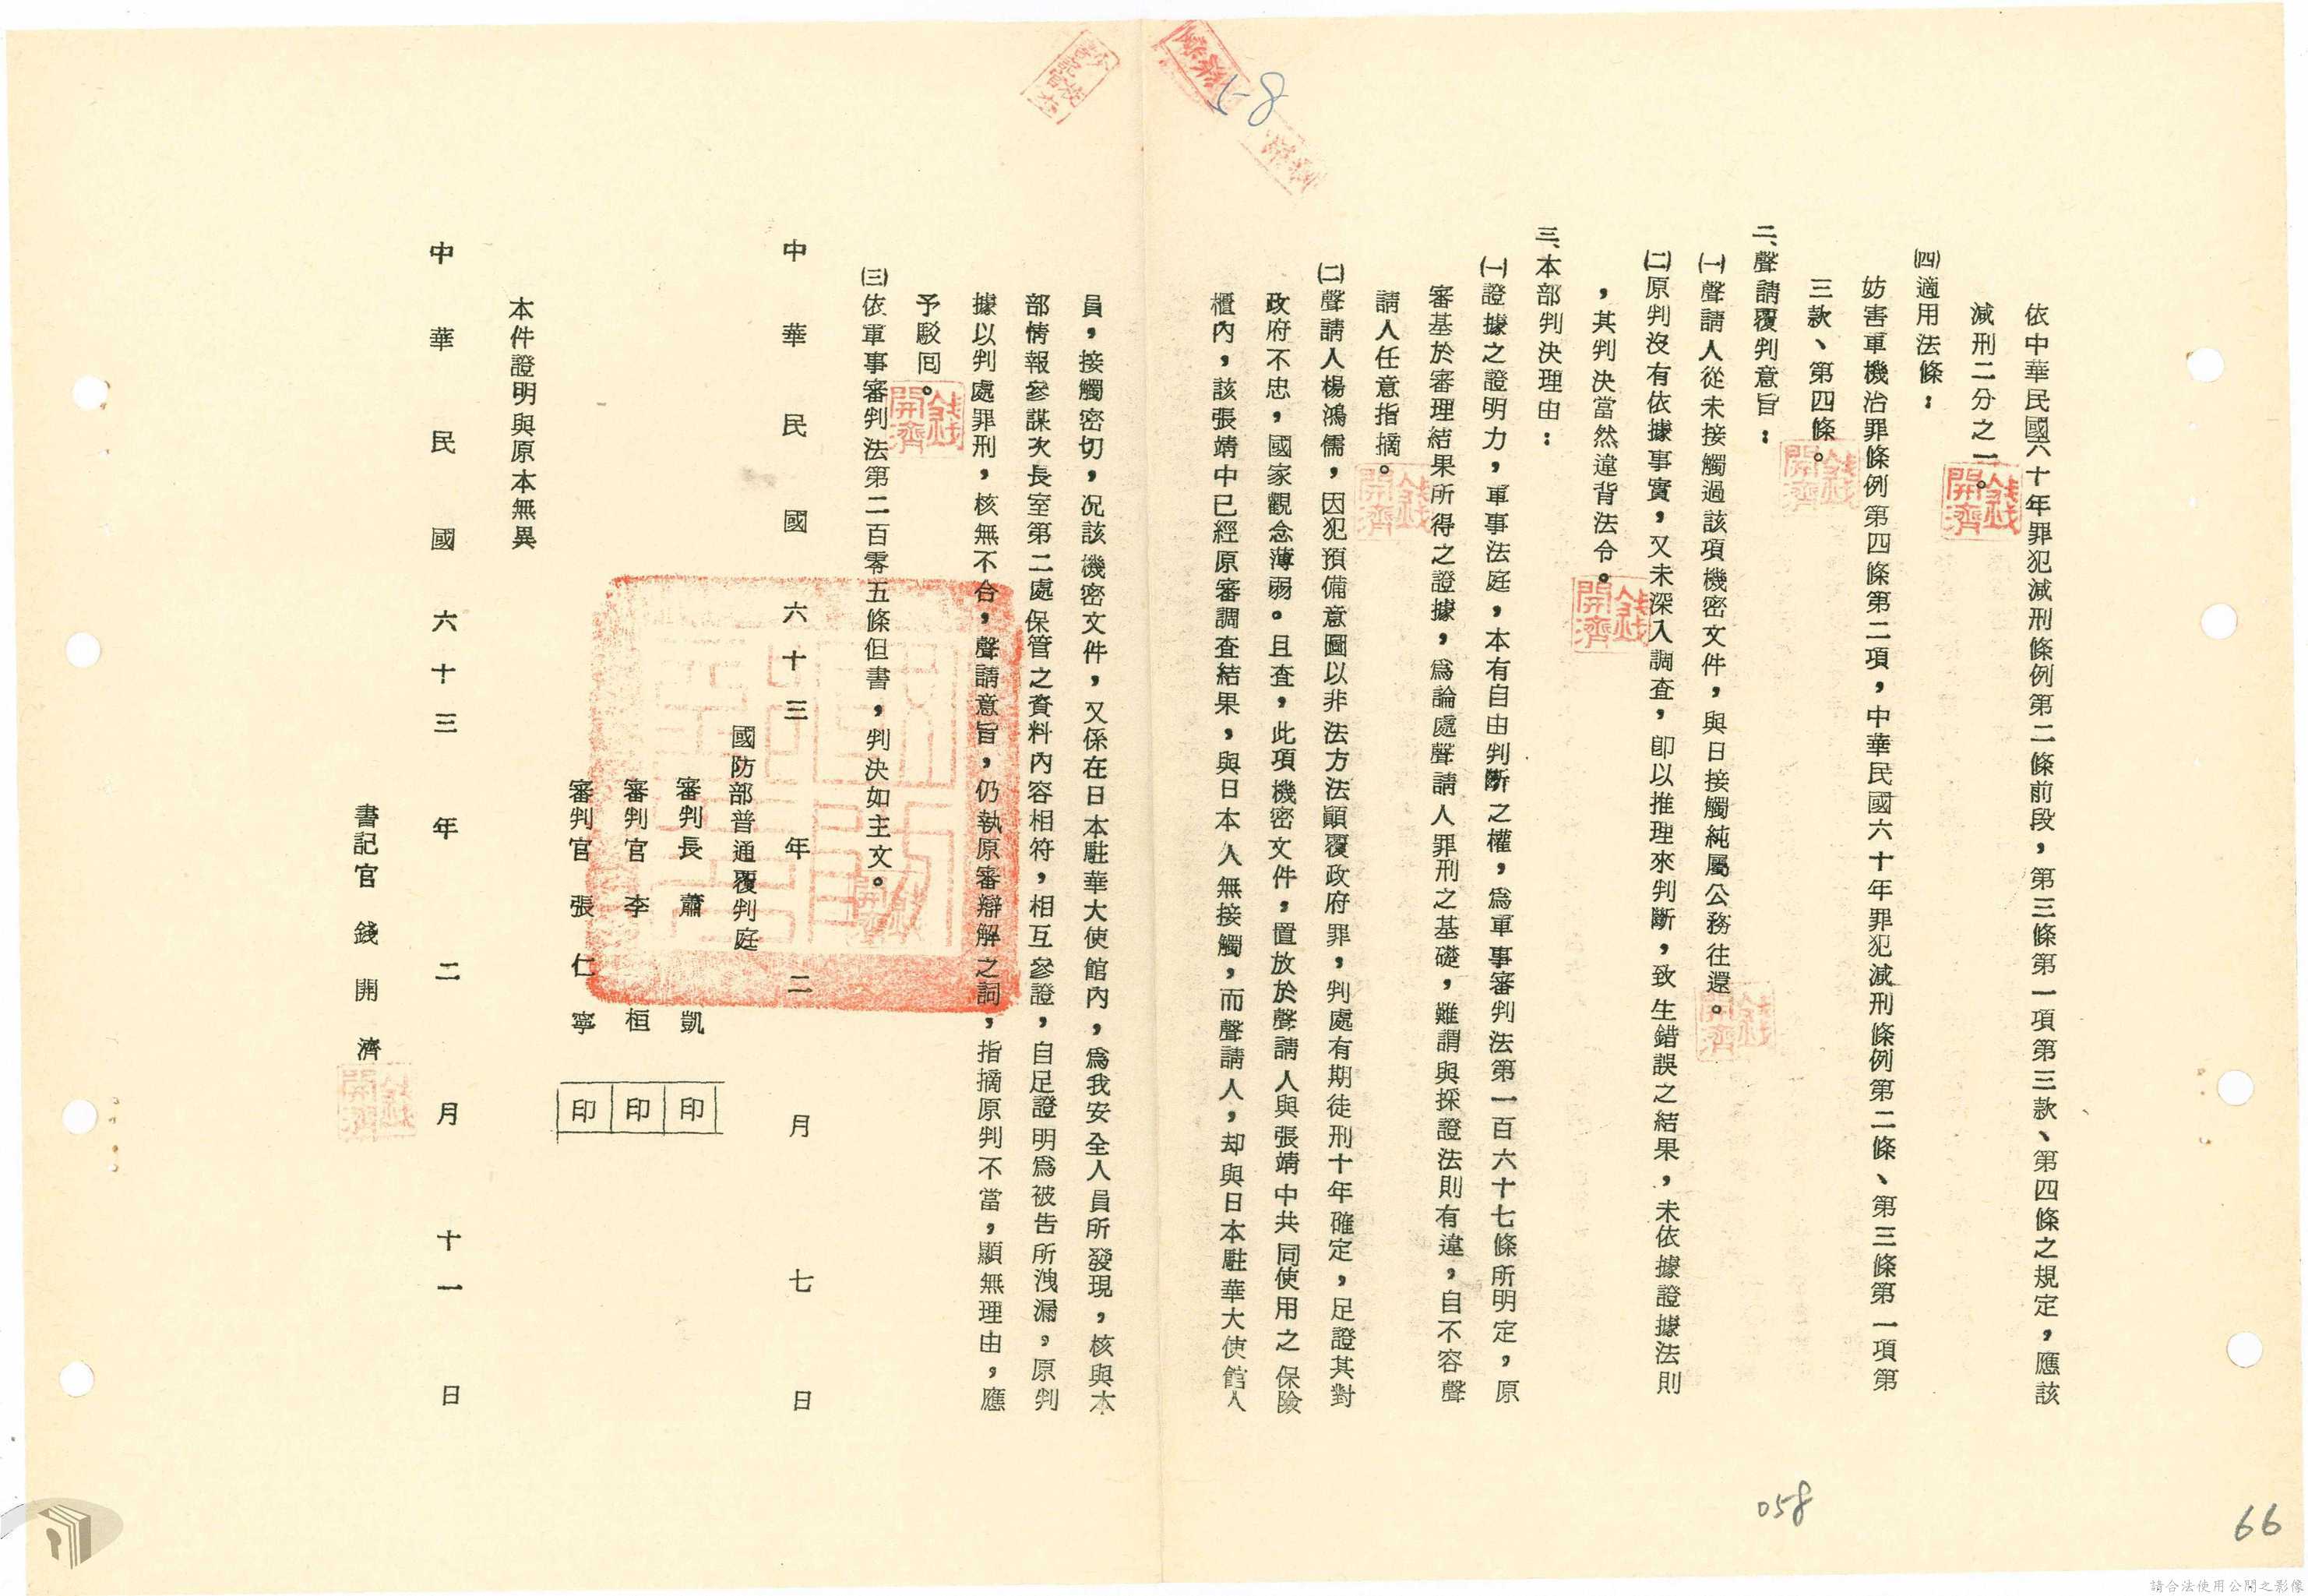 依中華民國六十年罪犯減刑條例第二條前段，第三條第一項第三款、第四條之規定，應該
減刑二分之一。
㈣適用法條：
妨害軍機治罪條例第四條第二項，中華民國六十年罪犯減刑條例第二條、第三條第一項第
三款、第四條。
二、聲請覆判意旨：
㈠聲請人從未接觸過該項機密文件，與日接觸純屬公務往還。
㈡原判沒有依據事實，又未深入調查，卽以推理來判斷，致生錯誤之結果，未依據證據法則
，其判決當然違背法令。
三、本部判決理由：
㈠證據之證明力，軍事法庭，本有自由判斷之權，爲軍事審判法第一百六十七條所明定，原
審基於審理結果所得之證據，爲論處聲請人罪刑之基礎，難謂與採證法則有違，自不容聲
請人任意指摘。
㈡聲請人楊鴻儒，因犯預備意圖以非法方法顚覆政府罪，判處有期徒刑十年確定，足證其對
政府不忠，國家觀念薄弱。且查，此項機密文件，置放於聲請人與張靖中共同使用之保險
櫃內，該張靖中已經原審調查結果，與日本人無接觸，而聲請人，却與日本駐華大使館人
員，接觸密切，况該機密文件，又係在日本駐華大使館內，爲我安全人員所發現，核與本
部情報參謀次長室第二處保管之資料內容相符，相互參證，自足證明爲被告所洩漏，原判
據以判處罪刑，核無不合，聲請意旨，仍執原審辯解之詞，指摘原判不當，顯無理由，應
予駁囘。
㈢依軍事審判法第二百零五條但書，判決如主文。
中華民國六十三年二月七日
國防部普通覆判庭
審判長 蕭 凱 印
審判官 李 桓 印
審判官 張仁寧 印
本件證明與原本無異
中華民國六十三年二月十一日
書記官 錢開濟
錢開濟
58
058
66
請合法使用公開之影像